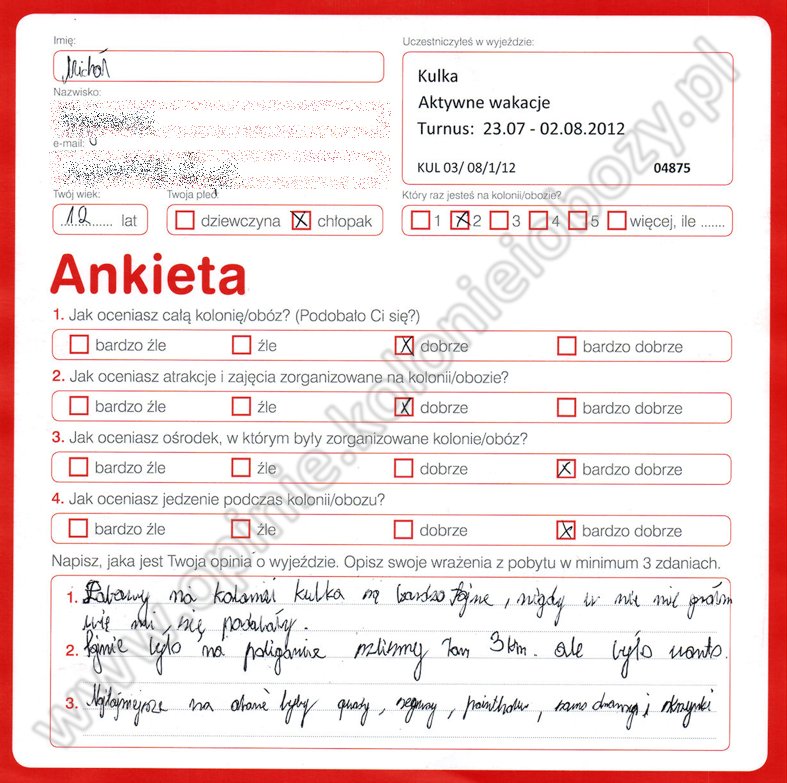 Imię:
Michał
Uczestniczyłeś w wyjeździe:
Kulka
Aktywne wakacje
Turnus: 23.07 - 02.08.2012
KUL 03/ 08/1/12 04875
Nazwisko:
e-mail:
Twój wiek:
12 lat
Twoja płeć:
dziewczyna chłopak
Który raz jesteś na kolonii/obozie?
1 2 3 4 5 więcej, ile .......
Ankieta
1. Jak oceniasz całą kolonię/obóz? (Podobało Ci się?)
bardzo źle źle dobrze bardzo dobrze
2. Jak oceniasz atrakcje i zajęcia zorganizowane na kolonii/obozie?
bardzo źle źle dobrze bardzo dobrze
3. Jak oceniasz ośrodek, w którym były zorganizowane kolonie/obóz?
bardzo źle źle dobrze bardzo dobrze
4. Jak oceniasz jedzenie podczas kolonii/obozu?
bardzo źle źle dobrze bardzo dobrze
Napisz, jaka jest Twoja opinia o wyjeździe. Opisz swoje wrażenia z pobytu w minimum 3 zdaniach.
1. Zabawy na kolonii kulka są bardzo fajne, nigdy w nie nie grałem
więc mi się podobały.
2. fajnie było na poligonie szliśmy tam 3 km. ale było warto.
3. Najfajniejsze na obozie były quady, segwey, paintball, i
www.opinie.kolonieiobozy.pl